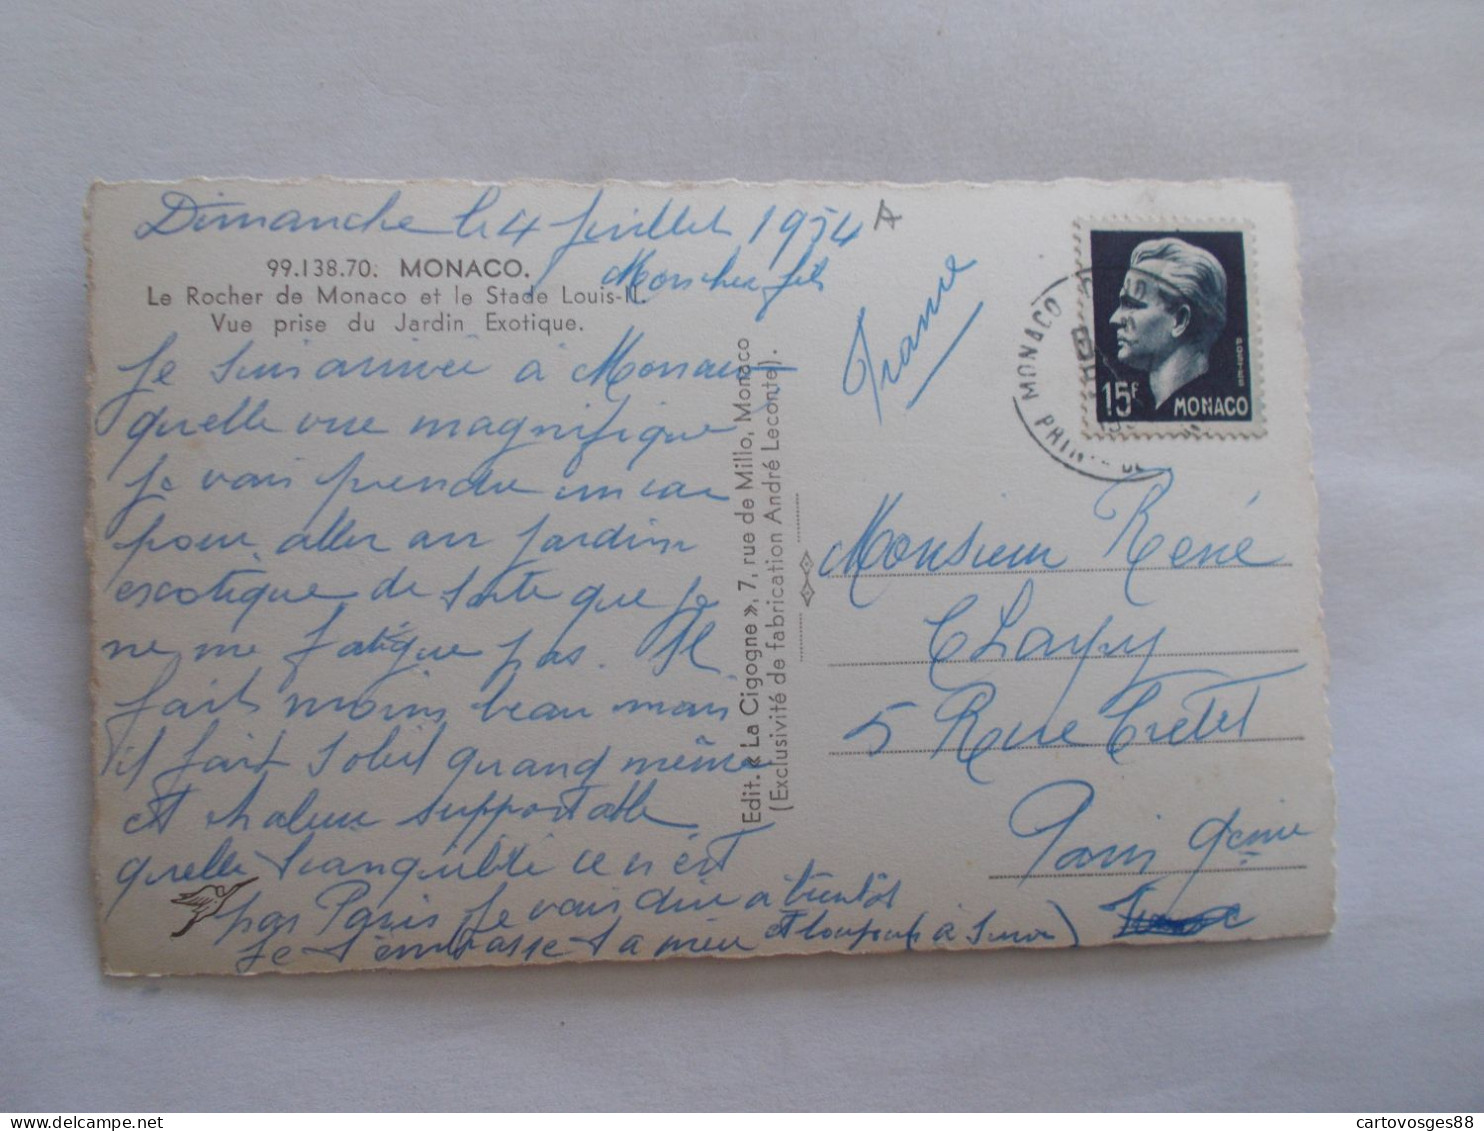 Dimanche le 4 Juillet 1954
A
99.138.70. MONACO.
Mon cher fils
Le Rocher de Monaco et le Stade Louis-II.
Vue prise du Jardin Exotique.
Je suis arrivée à Monaco
quelle vue magnifique
je vais prendre un car
pour aller au jardin
exotique de sorte que je
ne me fatigue pas. Il
fait moins beau mais
il fait soleil quand même
et chaleur supportable
quelle tranquilité ce n'est
pas Paris je vais dire à bientôt
Je t'embrasse ta mère et
Edit. « La Cigogne », 7, rue de Millo, Monaco
(Exclusivité de fabrication André Leconte).
France
MONACO
15F
MONACO
Monsieur René
5 Rue Cretet
Paris 9eme
cartovosges88